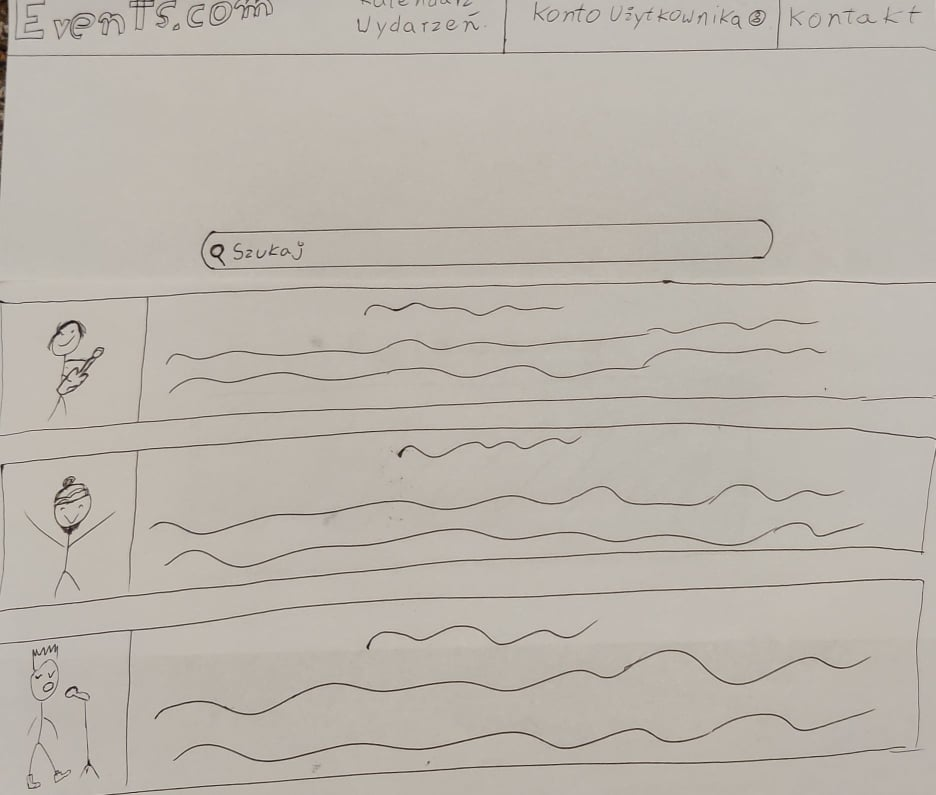 EvenTs.com
Kalendarz
Wydarzeń.
Konto Użytkownika
Kontakt
Szukaj